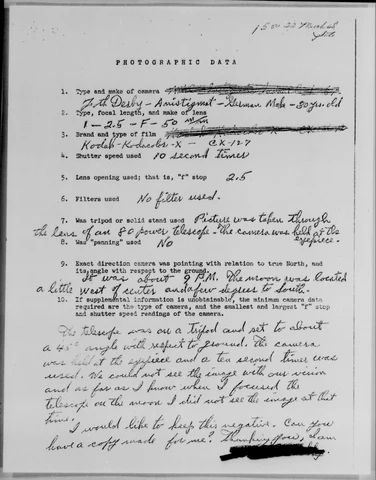 1500 22 March 66
PHOTOGRAPHIC DATA
1. Type and make of camera
Foth Derby - Anistigmat - German Make - 30 yrs. old
2. Type, focal length, and make of lens
1 - 2.5 - F - 50 m/m
3. Brand and type of film
Kodak - Kodacolor - X - CX-127
4. Shutter speed used 10 second timer
5. Lens opening used; that is, "f" stop 2.5
6. Filters used No filter used.
7. Was tripod or solid stand used Picture was taken through
the lens of an 80 power telescope. The camera was held at the
eyepiece.
8. Was "panning" used No
9. Exact direction camera was pointing with relation to true North, and
its angle with respect to the ground.
It was about 9 P.M. The moon was located
a little west of center and a few degrees to south.
10. If supplemental information is unobtainable, the minimum camera data
required are the type of camera, and the smallest and largest "f" stop
and shutter speed readings of the camera.
The telescope was on a tripod and set to about
a 45° angle with respect to ground. The camera
was held at the eyepiece and a ten second timer was
used. We could not see the image with our vision
and as far as I know when I focused the
telescope on the moon I did not see the image at that
time.
I would like to keep this negative. Can you
have a copy made for me? Thanking you, I am